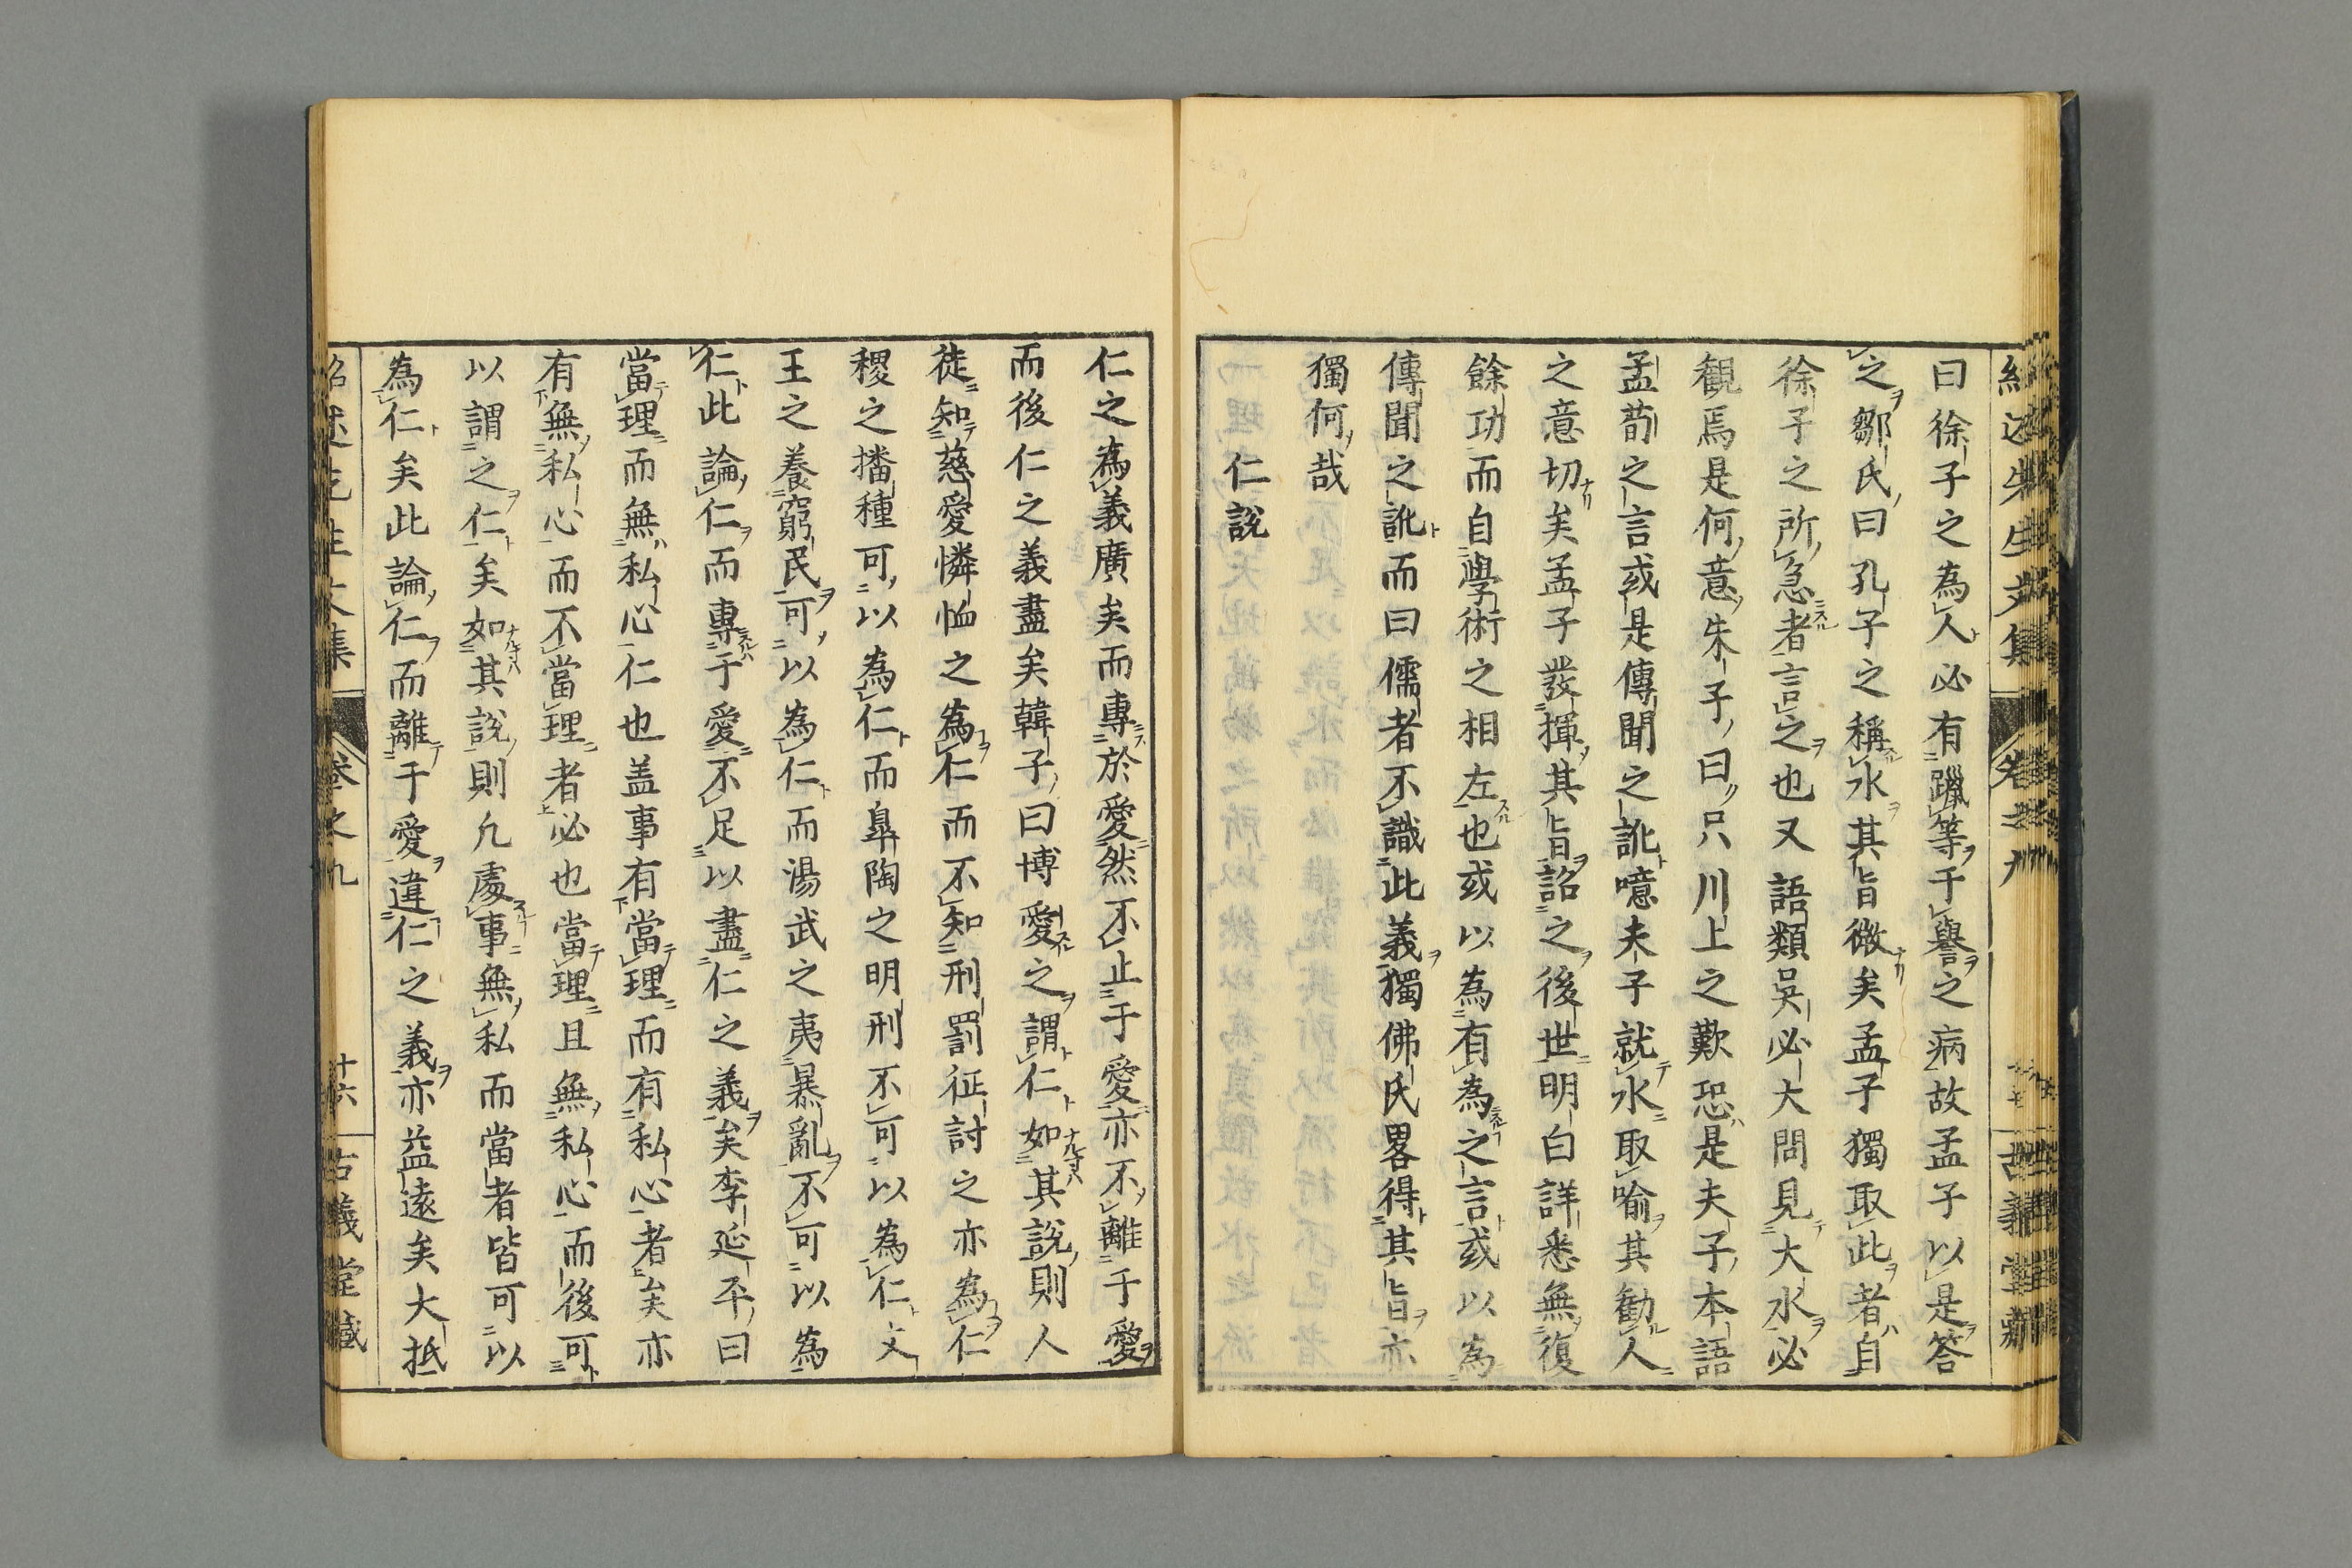 曰徐子之為人必有躐等干譽之病故孟子以是答
之鄒氏曰孔子之稱水其旨微矣孟子獨取此者自
徐子之所急者言之也又語類吳必大問見大水必
觀焉是何意朱子曰只川上之歎恐是夫子本語
孟荀之言或是傳聞之訛噫夫子就水取喻其勸人
之意切矣孟子發揮其旨詔之後世明白詳悉無復
餘功而自學術之相左也或以為有為之言或以為
傳聞之訛而曰儒者不識此義獨佛氏畧得其旨亦
獨何哉
仁說
仁之為義廣矣而專於愛然不止于愛亦不離于愛
而後仁之義盡矣韓子曰博愛之謂仁如其說則人
徒知慈愛憐恤之為仁而不知刑罰征討之亦為仁
稷之播種可以為仁而臯陶之明刑不可以為仁文
王之養窮民可以為仁而湯武之夷暴亂不可以為
仁此論仁而專于愛不足以盡仁之義矣李延平曰
當理而無私心仁也盖事有當理而有私心者矣亦
有無私心而不當理者必也當理且無私心而後可
以謂之仁矣如其說則凢處事無私而當者皆可以
為仁矣此論仁而離于愛違仁之義亦益遠矣大抵
紹述先生文集 卷之九 十六 古義堂藏